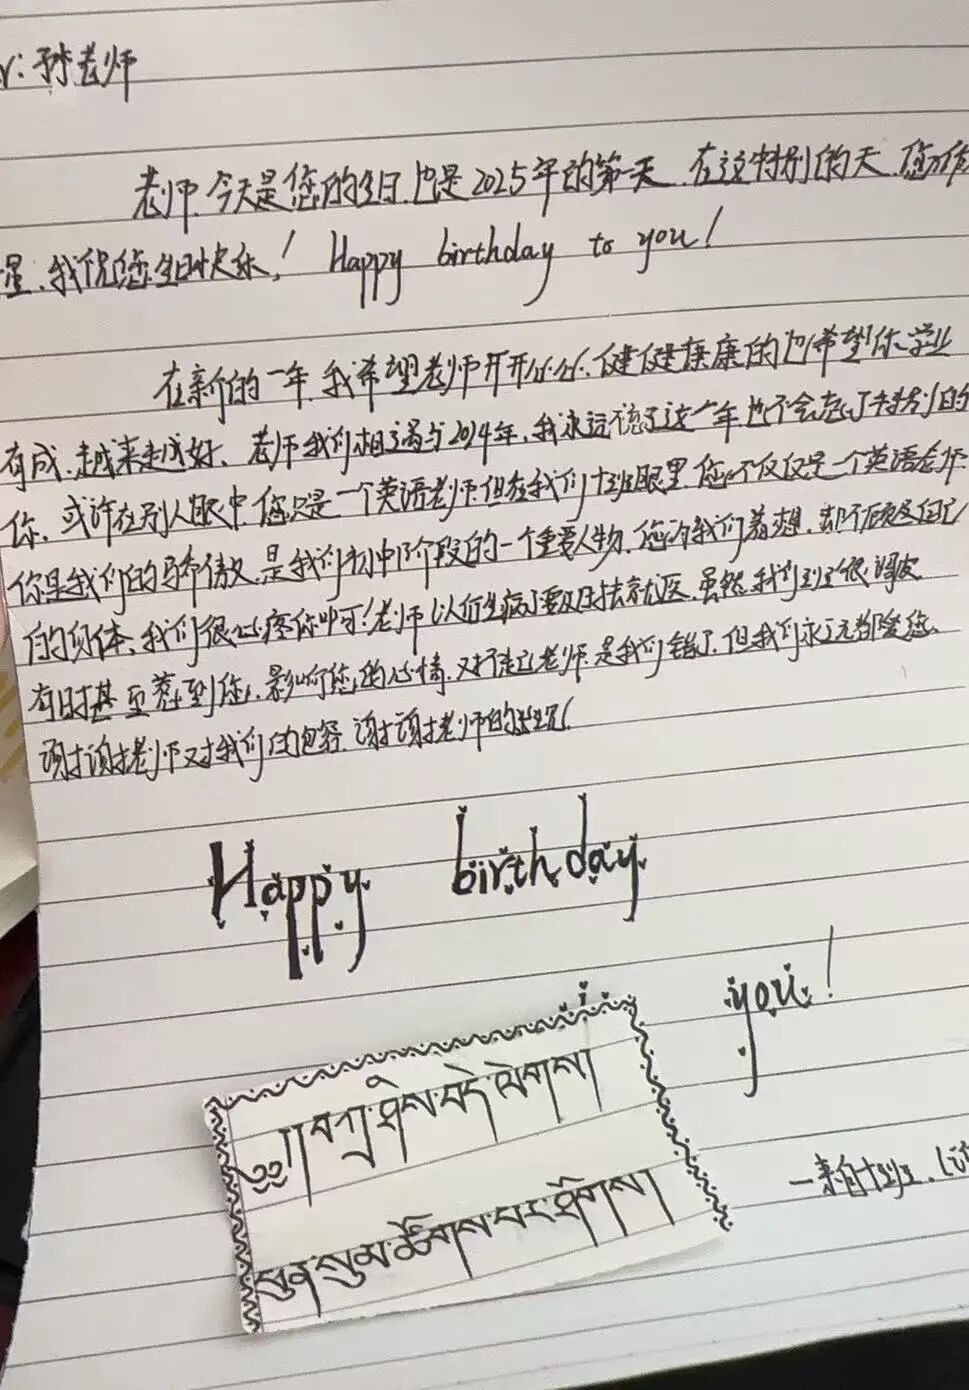 r: 孙老师
老师,今天是您的生日,也是2025年的第一天,在这特别的天,您作
星,我祝您生日快乐! Happy birthday to you!
在新的一年,我希望老师开开心心、健健康康的也希望你学业
有成,越来越好、老师我们相遇与2024年,我永远忘了这一年也不会忘了特别的
你,或许在别人眼中,您只是一个英语老师但在我们十班眼里,您不仅仅是一个英语老师
你是我们的骄傲,是我们初中阶段的一个重要人物,您为我们着想,都不顾及自己
的身体、我们很心疼你啊!老师以后生病了要及时去就医,虽然,我们班很调皮
有时甚至惹到您,影响您的心情,对不起老师是我们错了,但我们永远都爱您、
谢谢老师对我们的包容,谢谢老师的出现!
Happy birthday
you!
༄༅།།བཀྲ་ཤིས་བདེ་ལེགས།
ཕུན་སུམ་ཚོགས་པར་ཤོགས།
—来自十班